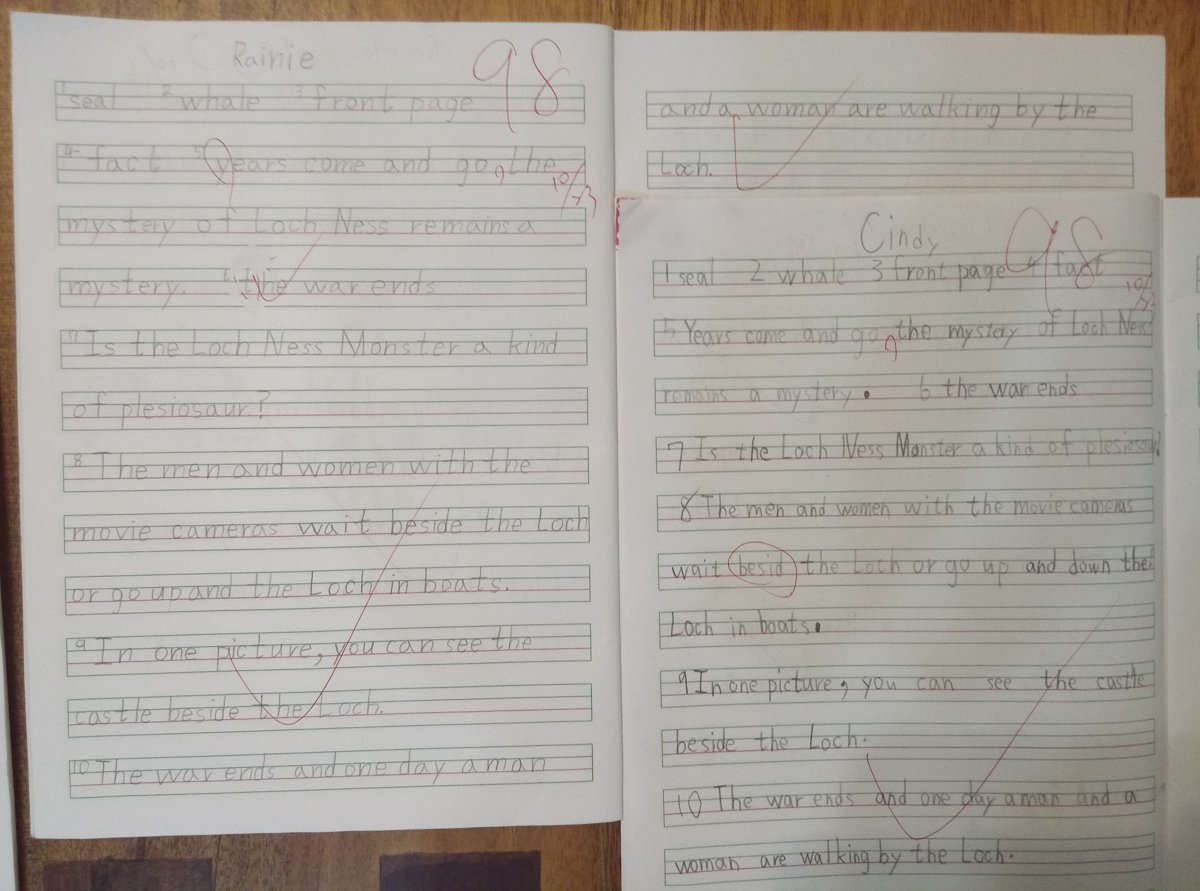 Rainie
98
1 seal 2 whale 3 front page
4 fact 5 years come and go, the
10/23
mystery of Loch Ness remains a
mystery. 6 the war ends
7 Is the Loch Ness Monster a kind
of plesiosaur?
8 The men and women with the
movie cameras wait beside the Loch
or go up and the Loch in boats.
9 In one picture, you can see the
castle beside the Loch.
10 The war ends and one day a man
and a woman are walking by the
Loch.
Cindy
98
1 seal 2 whale 3 front page 4 fact
5 Years come and go, the mystery of Loch Ness
remains a mystery. 6 the war ends
7 Is the Loch Ness Monster a kind of
8 The men and women with the movie cameras
wait besid the Loch or go up and down the
Loch in boats.
9 In one picture, you can see the castle
beside the Loch.
10 The war ends and one day a man and a
woman are walking by the Loch.